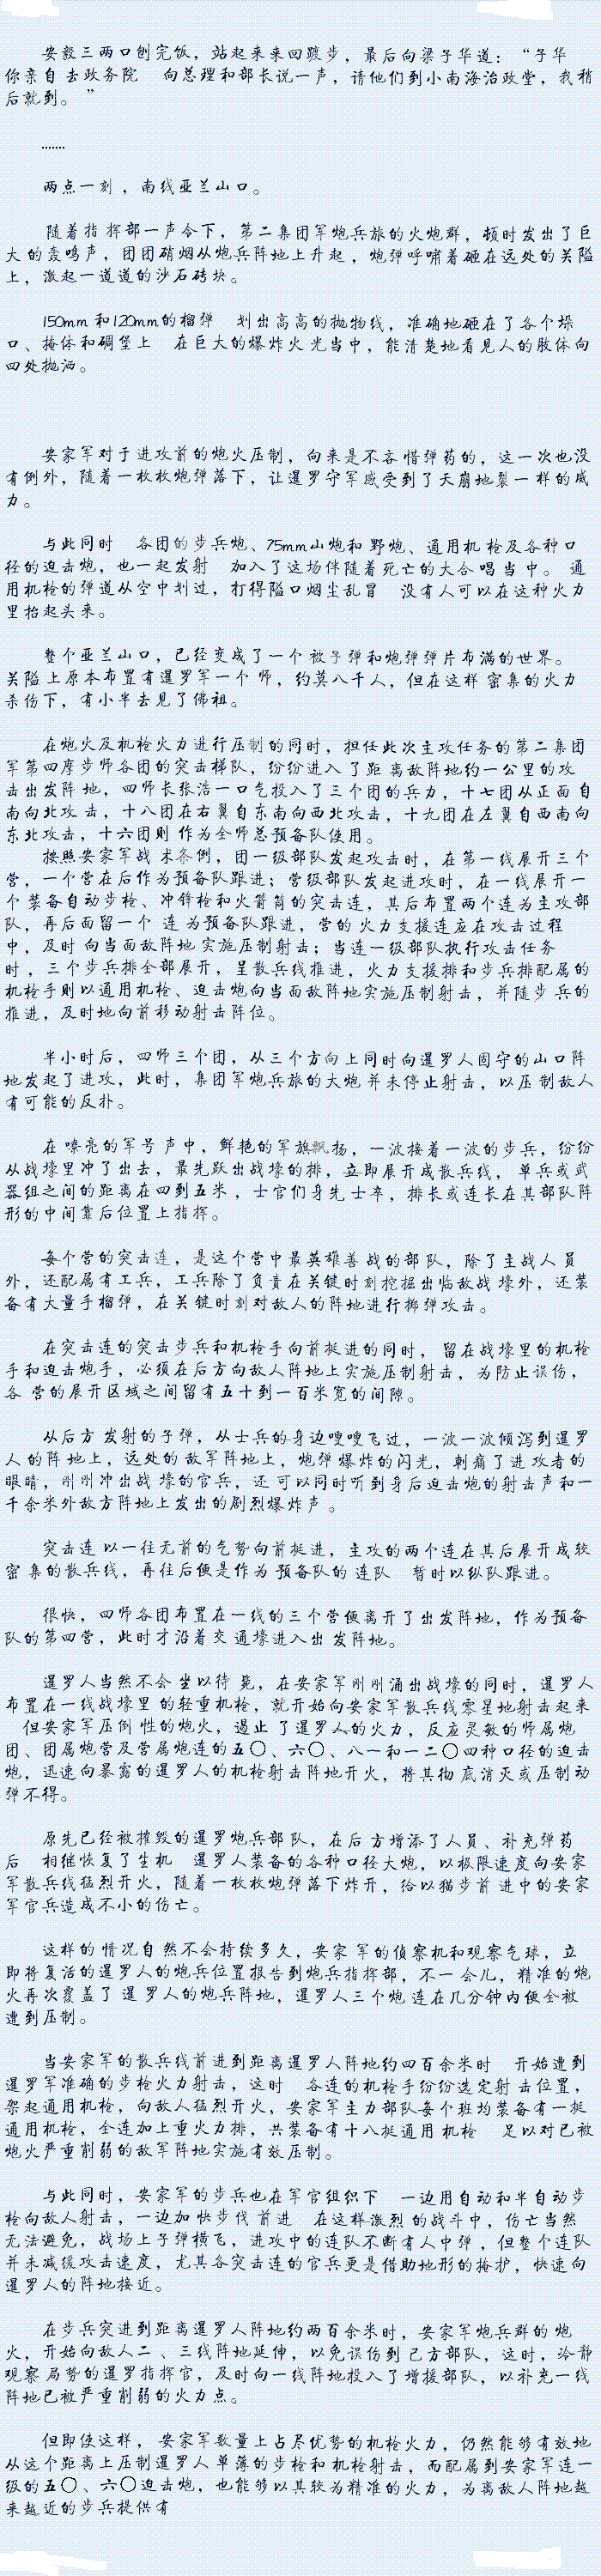 安毅三两口刨完饭，站起来来回踱步，最后向梁子华道：“子华
你亲自去政务院　向总理和部长说一声，请他们到小南海治政堂，我稍
后就到。”
.......
两点一刻，南线亚兰山口。
随着指挥部一声令下，第二集团军炮兵旅的火炮群，顿时发出了巨
大的轰鸣声，团团硝烟从炮兵阵地上升起，炮弹呼啸着砸在远处的关隘
上，激起一道道的沙石砖块。
150mm和120mm的榴弹　划出高高的抛物线，准确地砸在了各个垛
口、掩体和碉堡上　在巨大的爆炸火光当中，能清楚地看见人的肢体向
四处抛洒。
安家军对于进攻前的炮火压制，向来是不吝惜弹药的，这一次也没
有例外，随着一枚枚炮弹落下，让暹罗守军感受到了天崩地裂一样的威
力。
与此同时　各团的步兵炮、75mm山炮和野炮、通用机枪及各种口
径的迫击炮，也一起发射　加入了这场伴随着死亡的大合唱当中。通
用机枪的弹道从空中划过，打得隘口烟尘乱冒　没有人可以在这种火力
里抬起头来。
整个亚兰山口，已经变成了一个被子弹和炮弹弹片布满的世界。
关隘上原本布置有暹罗军一个师，约莫八千人，但在这样密集的火力
杀伤下，有小半去见了佛祖。
在炮火及机枪火力进行压制的同时，担任此次主攻任务的第二集团
军第四摩步师各团的突击梯队，纷纷进入了距离敌阵地约一公里的攻
击出发阵地，四师长张浩一口气投入了三个团的兵力，十七团从正面自
南向北攻击，十八团在右翼自东南向西北攻击，十九团在左翼自西南向
东北攻击，十六团则作为全师总预备队使用。
按照安家军战术条例，团一级部队发起攻击时，在第一线展开三个
营，一个营在后作为预备队跟进；营级部队发起进攻时，在一线展开一
个装备自动步枪、冲锋枪和火箭筒的突击连，其后布置两个连为主攻部
队，再后面留一个连为预备队跟进，营的火力支援连应在攻击过程
中，及时向当面敌阵地实施压制射击；当连一级部队执行攻击任务
时，三个步兵排全部展开，呈散兵线推进，火力支援排和步兵排配属的
机枪手则以通用机枪、迫击炮向当面敌阵地实施压制射击，并随步兵的
推进，及时地向前移动射击阵位。
半小时后，四师三个团，从三个方向上同时向暹罗人固守的山口阵
地发起了进攻，此时，集团军炮兵旅的大炮并未停止射击，以压制敌人
有可能的反扑。
在嘹亮的军号声中，鲜艳的军旗飘扬，一波接着一波的步兵，纷纷
从战壕里冲了出去，最先跃出战壕的排，立即展开成散兵线，单兵或武
器组之间的距离在四到五米，士官们身先士卒，排长或连长在其部队阵
形的中间靠后位置上指挥。
每个营的突击连，是这个营中最英雄善战的部队，除了主战人员
外，还配属有工兵，工兵除了负责在关键时刻挖掘出临敌战壕外，还装
备有大量手榴弹，在关键时刻对敌人的阵地进行掷弹攻击。
在突击连的突击步兵和机枪手向前挺进的同时，留在战壕里的机枪
手和迫击炮手，必须在后方向敌人阵地上实施压制射击，为防止误伤，
各营的展开区域之间留有五十到一百米宽的间隙。
从后方发射的子弹，从士兵的身边嗖嗖飞过，一波一波倾泻到暹罗
人的阵地上，远处的敌军阵地上，炮弹爆炸的闪光，刺痛了进攻者的
眼睛，刚刚冲出战壕的官兵，还可以同时听到身后迫击炮的射击声和一
千余米外敌方阵地上发出的剧烈爆炸声。
突击连以一往无前的气势向前挺进，主攻的两个连在其后展开成较
密集的散兵线，再往后便是作为预备队的连队　暂时以纵队跟进。
很快，四师各团布置在一线的三个营便离开了出发阵地，作为预备
队的第四营，此时才沿着交通壕进入出发阵地。
暹罗人当然不会坐以待毙，在安家军刚刚涌出战壕的同时，暹罗人
布置在一线战壕里的轻重机枪，就开始向安家军散兵线零星地射击起来
但安家军压倒性的炮火，遏止了暹罗人的火力，反应灵敏的师属炮
团、团属炮营及营属炮连的五〇、六〇、八一和一二〇四种口径的迫击
炮，迅速向暴露的暹罗人的机枪射击阵地开火，将其彻底消灭或压制动
弹不得。
原先已经被摧毁的暹罗炮兵部队，在后方增添了人员、补充弹药
后　相继恢复了生机　暹罗人装备的各种口径大炮，以极限速度向安家
军散兵线猛烈开火，随着一枚枚炮弹落下炸开，给以猫步前进中的安家
军官兵造成不小的伤亡。
这样的情况自然不会持续多久，安家军的侦察机和观察气球，立
即将复活的暹罗人的炮兵位置报告到炮兵指挥部，不一会儿，精准的炮
火再次覆盖了暹罗人的炮兵阵地，暹罗人三个炮连在几分钟内便全被
遭到压制。
当安家军的散兵线前进到距离暹罗人阵地约四百余米时　开始遭到
暹罗军准确的步枪火力射击，这时　各连的机枪手纷纷选定射击位置，
架起通用机枪，向敌人猛烈开火，安家军主力部队每个班均装备有一挺
通用机枪，全连加上重火力排，共装备有十八挺通用机枪　足以对已被
炮火严重削弱的敌军阵地实施有效压制。
与此同时，安家军的步兵也在军官组织下　一边用自动和半自动步
枪向敌人射击，一边加快步伐前进　在这样激烈的战斗中，伤亡当然
无法避免，战场上子弹横飞，进攻中的连队不断有人中弹，但整个连队
并未减缓攻击速度，尤其各突击连的官兵更是借助地形的掩护，快速向
暹罗人的阵地接近。
在步兵突进到距离暹罗人阵地约两百余米时，安家军炮兵群的炮
火，开始向敌人二、三线阵地延伸，以免误伤到己方部队，这时，冷静
观察局势的暹罗指挥官，及时向一线阵地投入了增援部队，以补充一线
阵地已被严重削弱的火力点。
但即使这样，安家军数量上占尽优势的机枪火力，仍然能够有效地
从这个距离上压制暹罗人单薄的步枪和机枪射击，而配属到安家军连一
级的五〇、六〇迫击炮，也能够以其较为精准的火力，为离敌人阵地越
来越近的步兵提供有